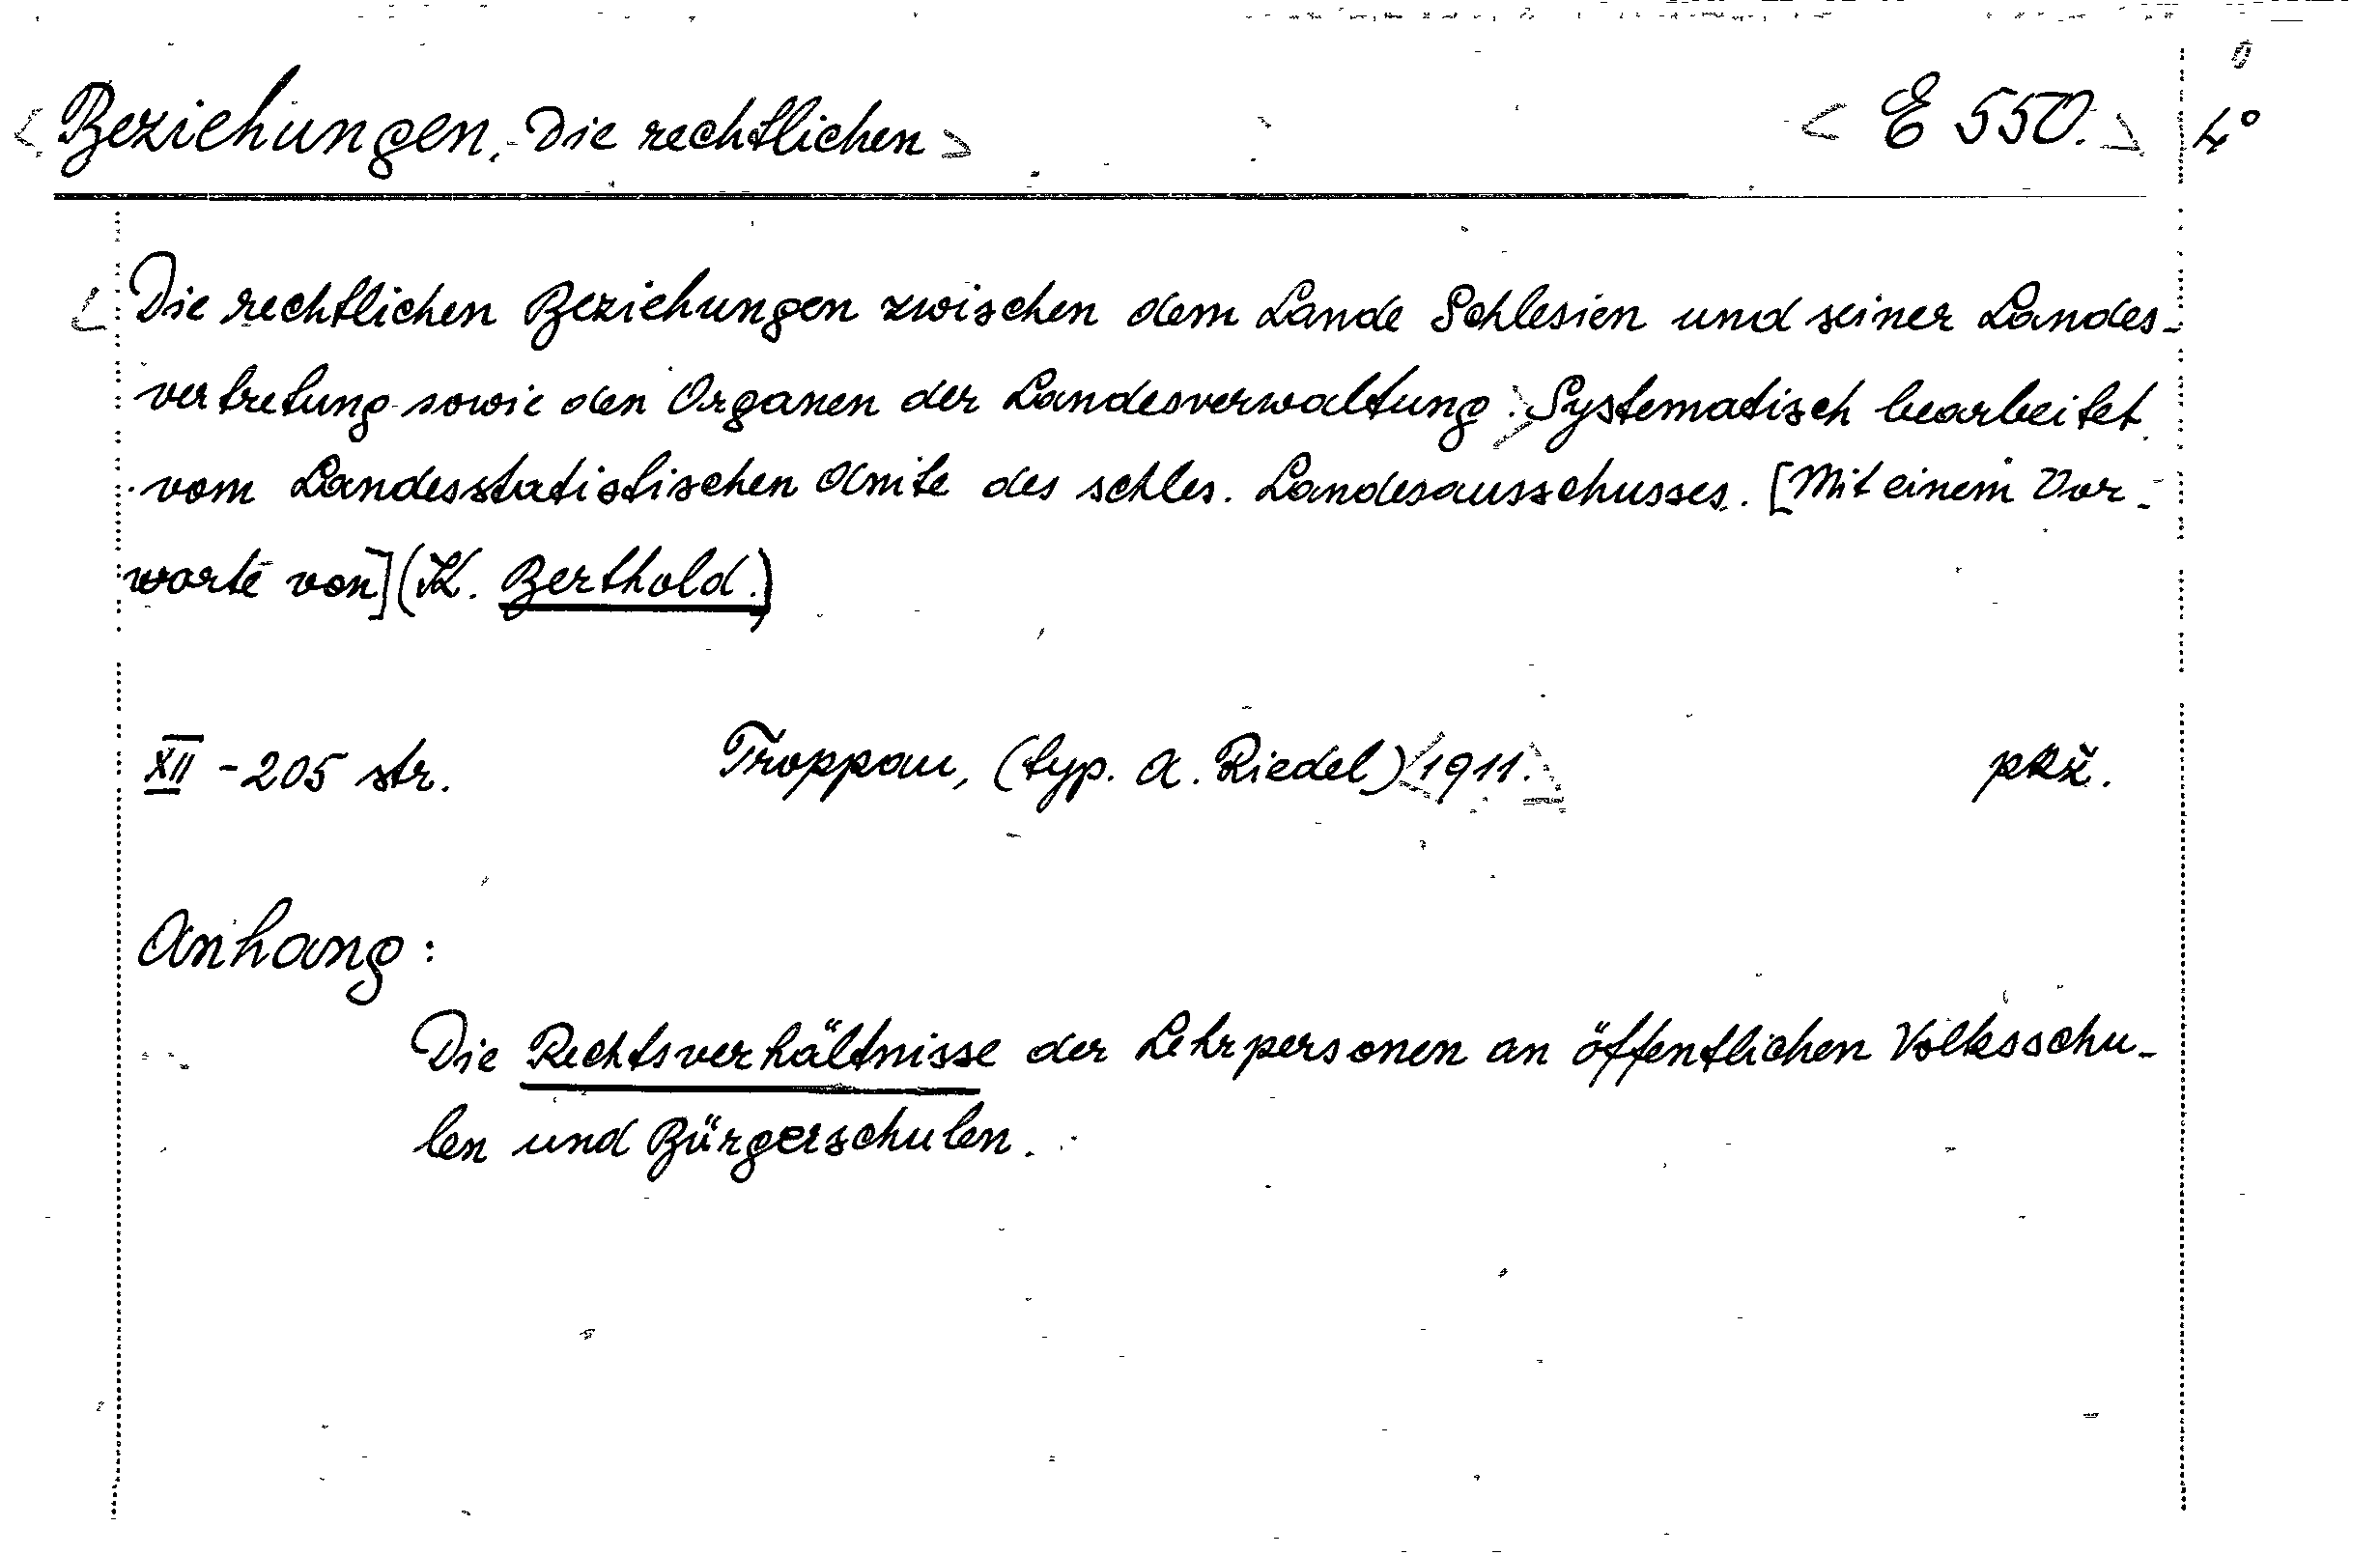 <Beziehungen, Die rechtlichen> <E 550.> 4°
<Die rechtlichen Beziehungen zwischen dem Lande Schlesien und seiner Landes-
vertretung sowie den Organen der Landesverwaltung.> Systematisch bearbeitet
vom Landesstatistischen Amte des schles. Landesausschusses. [Mit einem Vor-
worte von] (K. Berthold.)
XII - 205 str. Troppau, (typ. A. Riedel) <1911.>
Anhang:
Die Rechtsverhältnisse der Lehrpersonen an öffentlichen Volksschu-
len und Bürgerschulen.